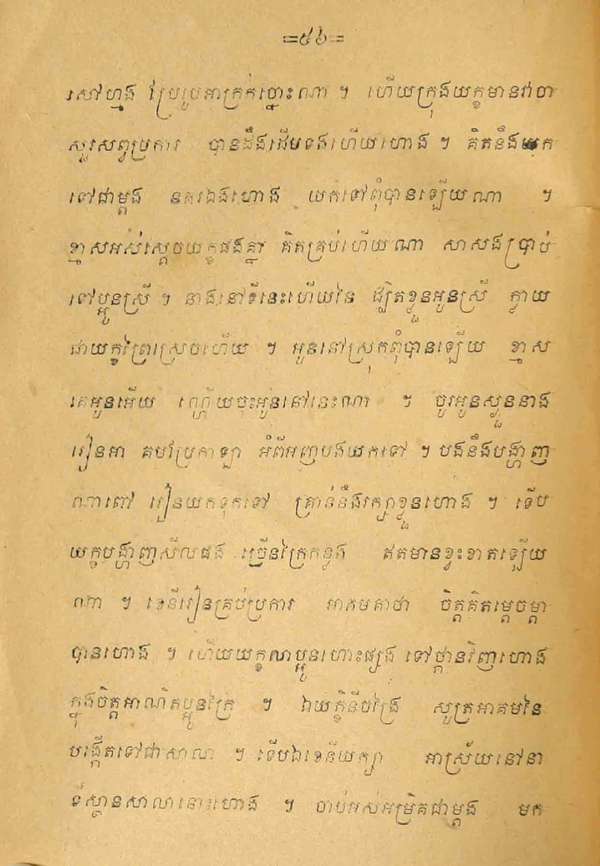 =៥៦=
សៅហ្មង ប្រែរូបអាក្រក់ប្លោះណា ។ ហើយក្រុងយក្ខមានវាចា
សួរសព្វប្រការ បានដឹងដើមទងហើយហោង ។ គិតនឹងយក
ទៅជាម្ដង នគរឯងហោង យកទៅពុំបានឡើយណា ។
ខ្មាសអស់ស្ដេចយក្ខផងគ្នា គិតគ្រប់ហើយណា សាសងប្រាប់
ទៅប្អូនស្រី ។ នាងនៅទីនេះហើយនៃ ផ្បិតខ្លួនអូនស្រី ក្លាយ
ជាយក្ខព្រៃស្រេចហើយ ។ អូននៅស្រុកពុំបានឡើយ ខ្មាស
គេអូនអើយ ណ្ហើយចុះអូននៅនេះណា ។ ចូរអូនស្ងួននាង
រៀនអា គមប្រែកាឡា អំពីអញបងយកទៅ ។ បងនឹងបង្ហាញ
ណាពៅ រៀនយកទុកទៅ គ្រាន់នឹងរក្សាខ្លួនហោង ។ ទើប
យក្ខបង្ហាញសីលផង ច្រើនក្រៃកន្លង ឥតមានខ្វះខាតឡើយ
ណា ។ ខេនីរៀនគ្រប់ប្រការ អាគមគាថា ចិត្តគិតម្ដេចម្ដា
បានហោង ។ ហើយយក្ខលាប្អូនហោះផ្សង ទៅថ្ពានវិញហោង
ក្នុងចិត្តអាណិតប្អូនក្រៃ ។ ឯយក្ខិនីចង្រៃ សូត្រអាគមនៃ
បង្កើតទៅជាសាលា ។ ទើបឯខេនីយក្សា អាស្រ័យនៅនា
ទីស្ថានសាលានោះហោង ។ ចាប់អស់អម្រឹគជាម្ដង មក